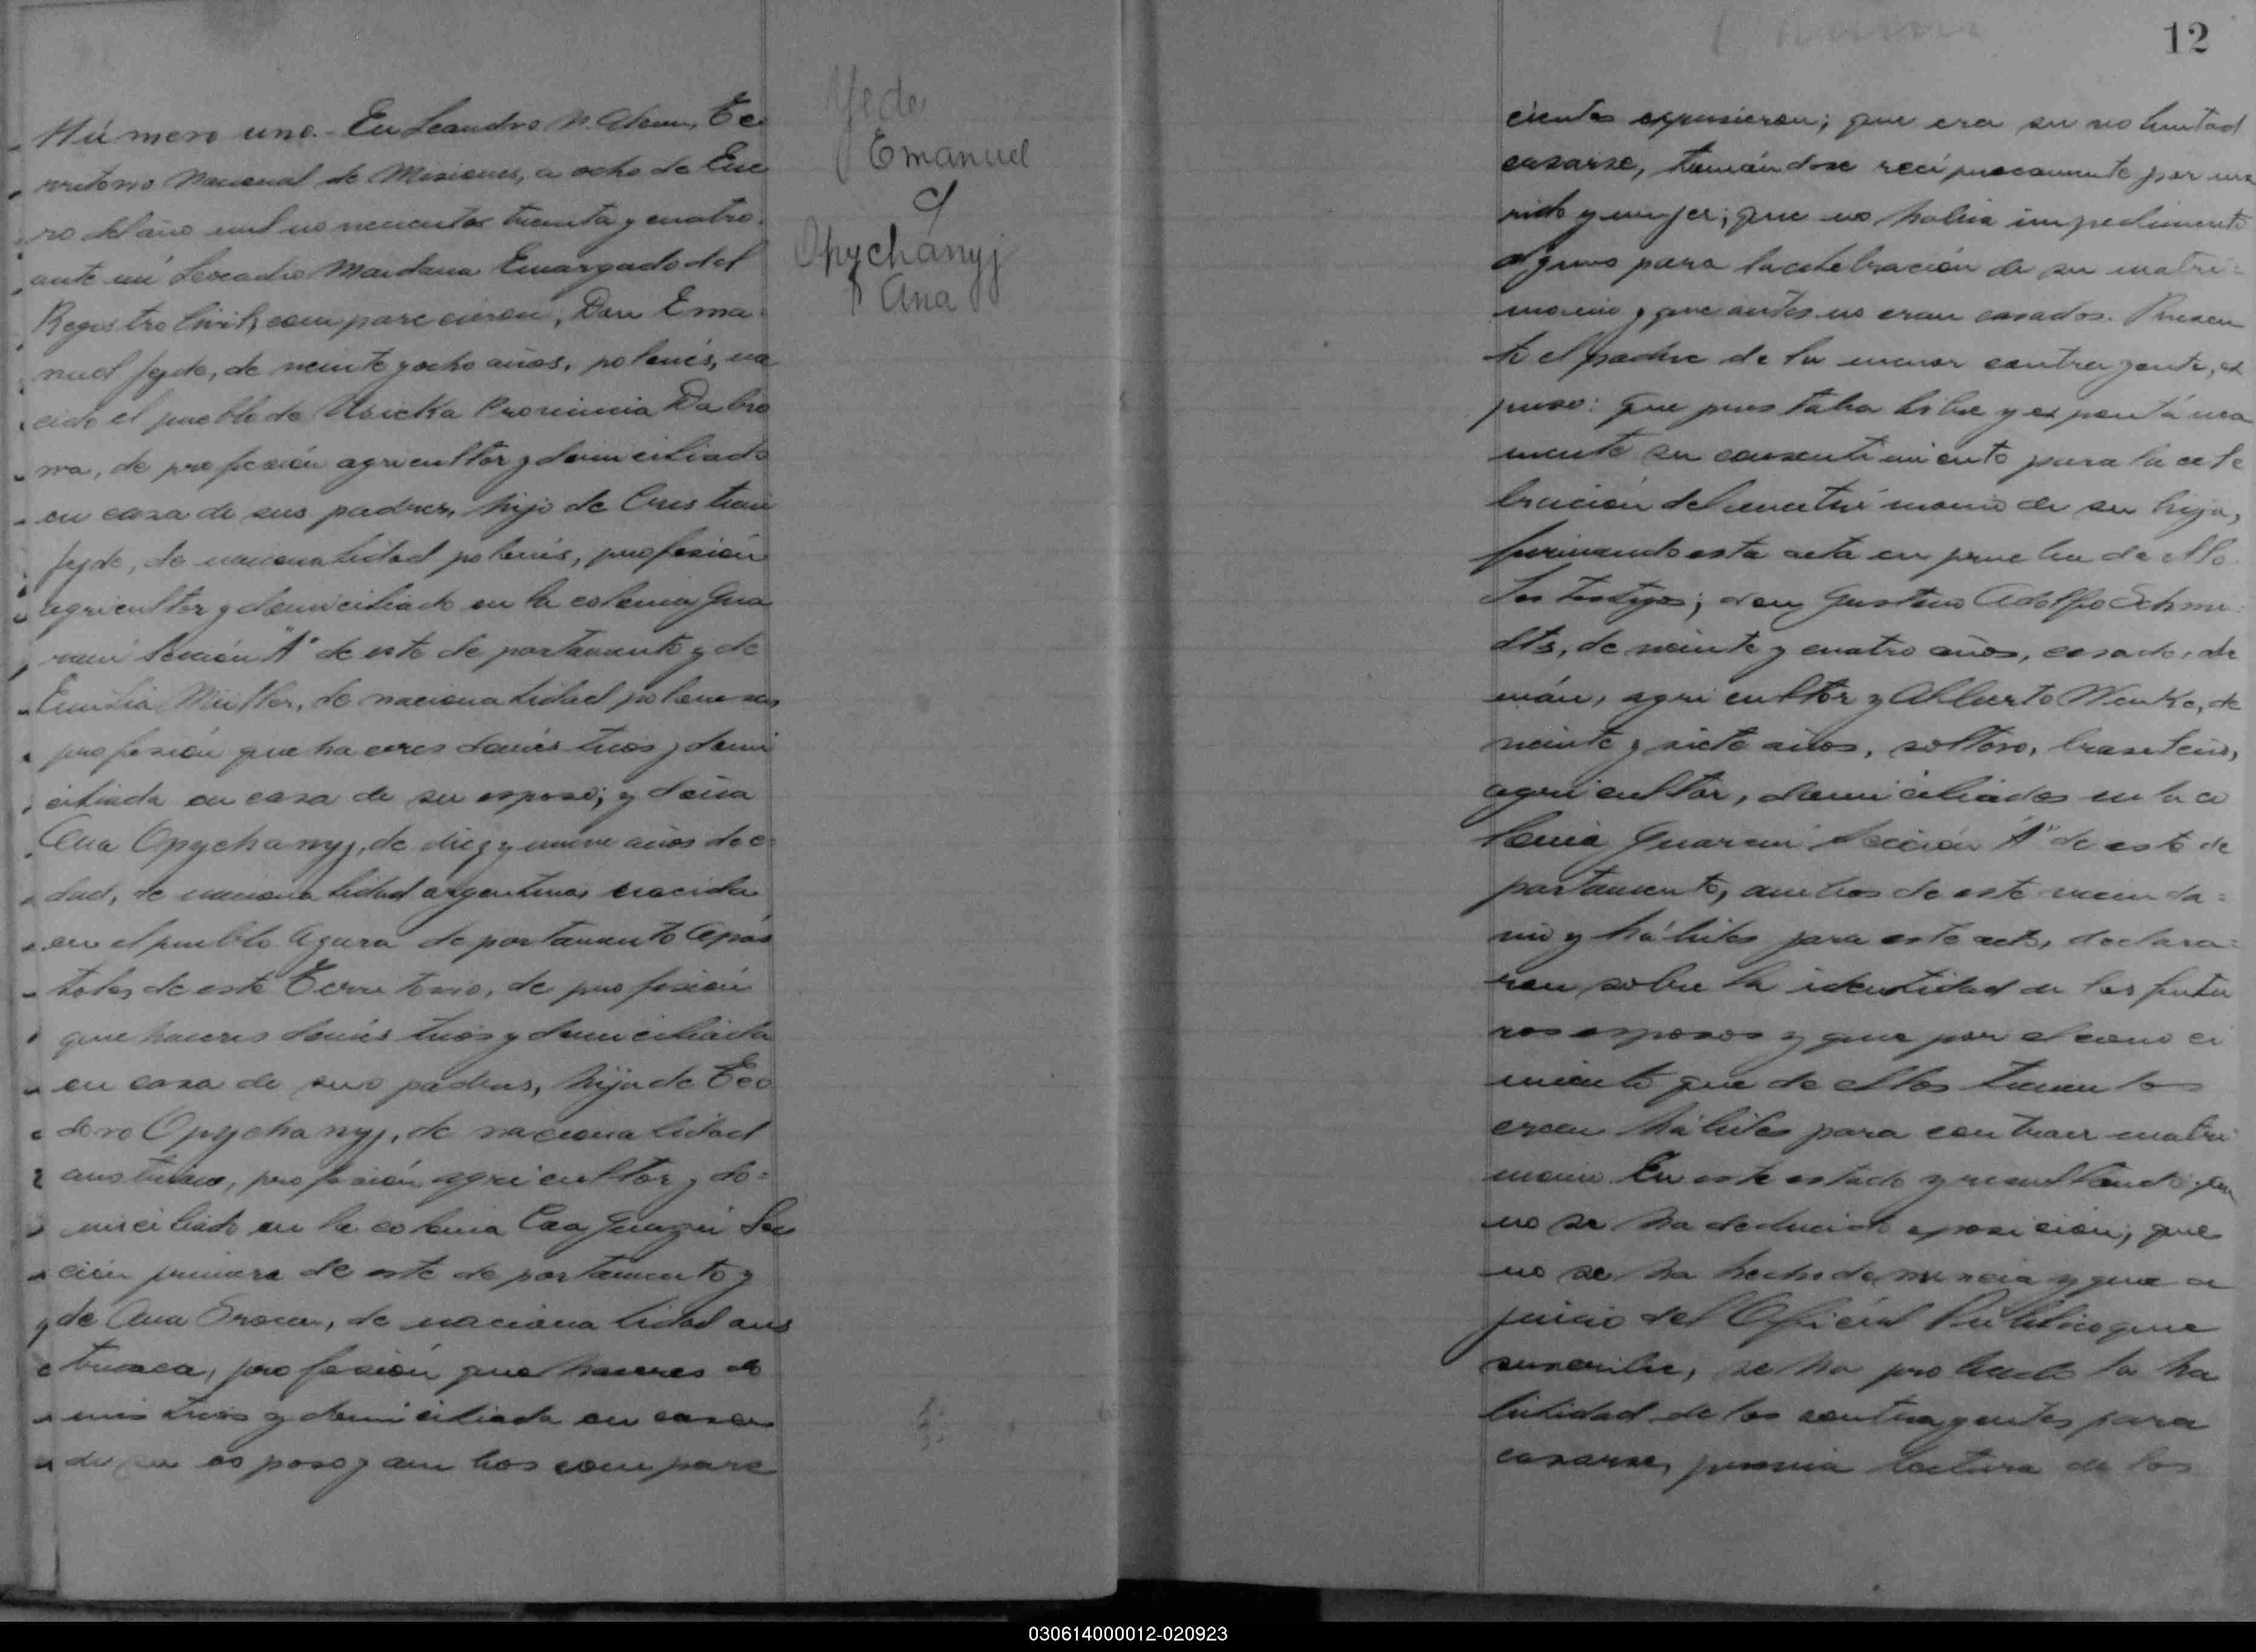 Número uno.- En Leandro N. Alem, Te
rritorio Nacional de Misiones, a ocho de Ene
ro del año mil novecientos treinta y cuatro.
ante mí Leocadio Maidana Encargado del
Registro Civil, comparecieron, Don Ema=
nuel Jyde, de veinte y ocho años, polonés, na
cido el pueblo de Usicka Provincia Dabro
wa, de profesión agricultor y domiciliado
en casa de sus padres, hijo de Cristian
Jyde, de nacionalidad polonés, profesión
agricultor y domiciliado en la colonia Gua
raní Sección "A" de este departamento y de
Emilia Müller, de nacionalidad polonesa,
profesión quehaceres domésticos y domi
ciliada en casa de su esposo; y doña
Ana Opychanyj, de diez y nueve años de e=
dad, de nacionalidad argentina, nacida
en el pueblo Azara departamento Após
toles de este Territorio, de profesión
quehaceres domésticos y domiciliada
en casa de sus padres, hija de Teo
doro Opychanyj, de nacionalidad
austriaco, profesión agricultor y do=
miciliado en la colonia Caa Guazú Sec
ción primera de este departamento y
de Ana, de nacionalidad aus
triaca, profesión quehaceres do
mésticos y domiciliada en casa
de su esposo y ambos compare
Emanuel
y
Opychanyj
Ana
12
cientes expusieron; que era su voluntad
casarse, tomándose recíprocamente por ma
rido y mujer; que no había impedimento
alguno para la celebración de su matri=
monio y que antes no eran casados. Presen
te el padre de la menor contrayente, ex
puso: que prestaba libre y espontánea
mente su consentimiento para la cele
bración del matrimonio de su hija,
firmando esta acta en prueba de ello.
Los testigos; don Gustavo Adolfo Schmi=
dts, de veinte y cuatro años, casado, ale
mán, agricultor y Alberto Wenke, de
veinte y siete años, soltero, brasileño,
agricultor, domiciliados en la co
lonia Guaraní Sección "A" de este de
partamento, ambos de este vecinda=
rio y hábiles para este acto, declara=
ron sobre la identidad de los futu
ros esposos y que por el conoci
miento que de ellos tienen los
creen hábiles para contraer matri
monio. En este estado y resultando que
no se ha deducido oposición; que
no se ha hecho denuncia y que a
juicio del Oficial Público que
suscribe, se ha probado la ha
bilidad de los contrayentes para
casarse, previa lectura de los
030614000012-020923